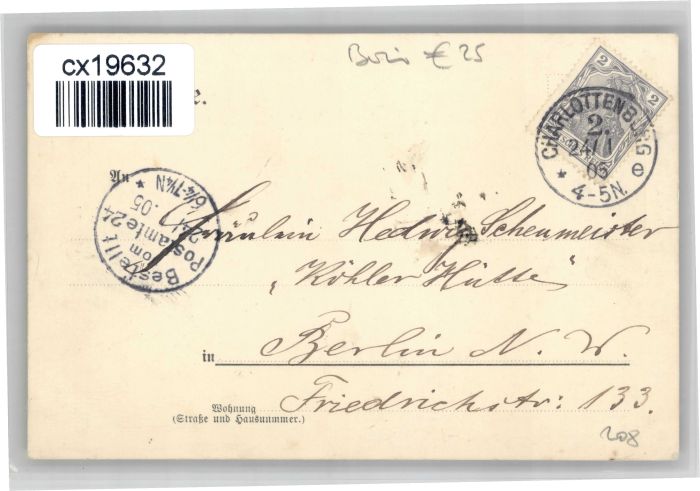 cx19632
€ 25
e.
2 2
CHARLOTTENBURG
2.
24/1
05
* 4-5N. e
An
Bestellt
vom
Postamte 24
24/1
.05
6¼-7½N
*
Fräulein Hedwig Scheumeister
„Köhler Hütte"
in Berlin N. W.
Wohnung
(Straße und Hausnummer.)
Friedrichstr: 133.
208